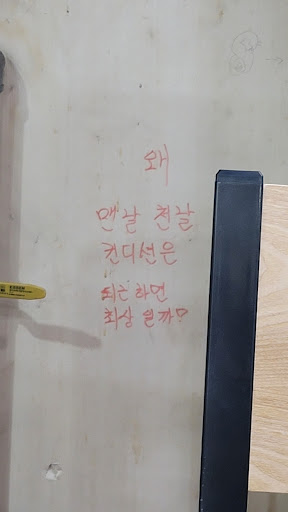 왜
맨날 천날
컨디션은
퇴근하면
최상 일까?